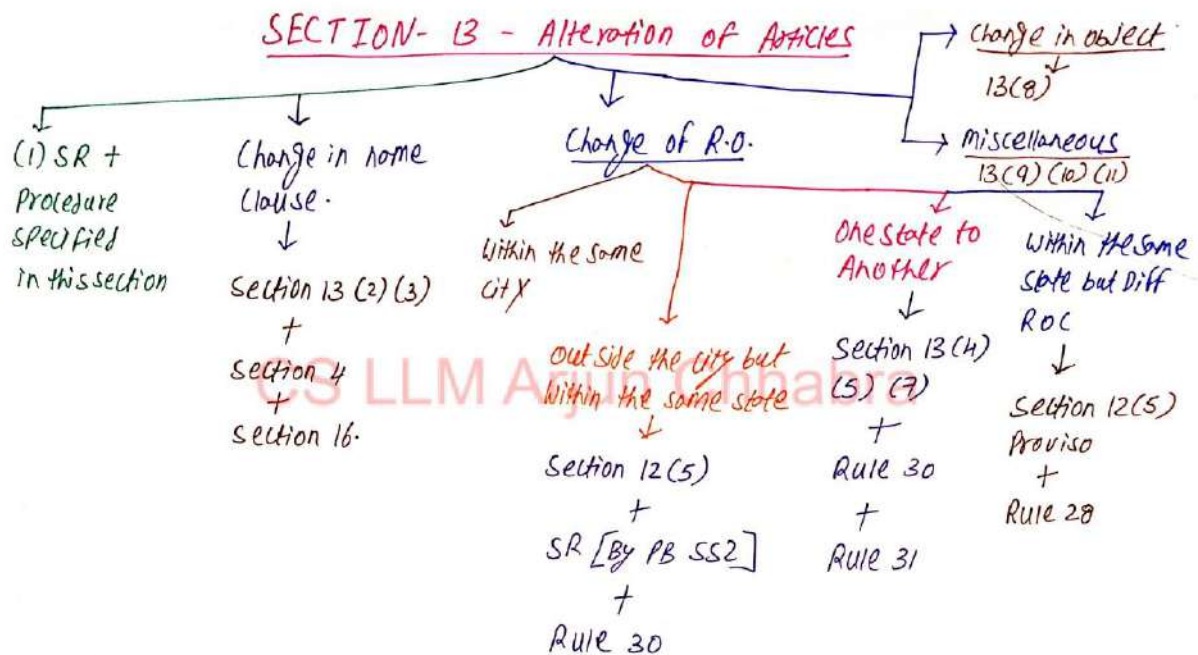 SECTION- 13 - Alteration of Articles
(1) SR +
Procedure
specified
in this section
Change in name
Clause.
Section 13 (2) (3)
+
Section 4
+
Section 16.
Change of R.O.
Within the same
city
Outside the city but
Within the same state
Section 12(5)
+
SR [By PB SS2]
+
Rule 30
One state to
Another
Section 13(4)
(5) (7)
+
Rule 30
+
Rule 31
Within the same
state but Diff
ROC
Section 12(5)
Proviso
+
Rule 28
Change in object
13(8)
Miscellaneous
13(9) (10) (11)
CS LLM Arjun Chhabra